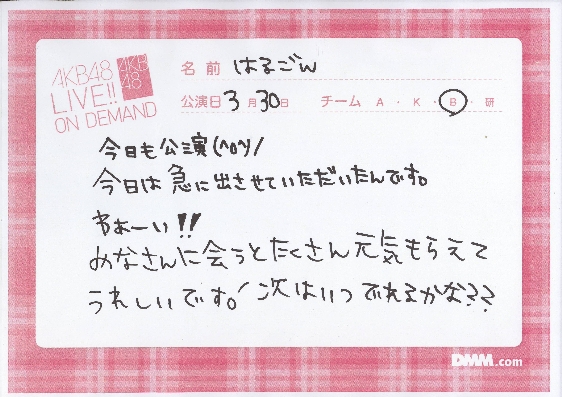 AKB48
LIVE!!
ON DEMAND
AKB
48
名前 はるごん
公演日 3月30日 チーム A・K・B・研
今日も公演(^o^)/
今日は急に出させていただいたんです。
わぁーい!!
みなさんに会うとたくさん元気もらえて
うれしいです。! 次はいつでれるかな??
DMM.com